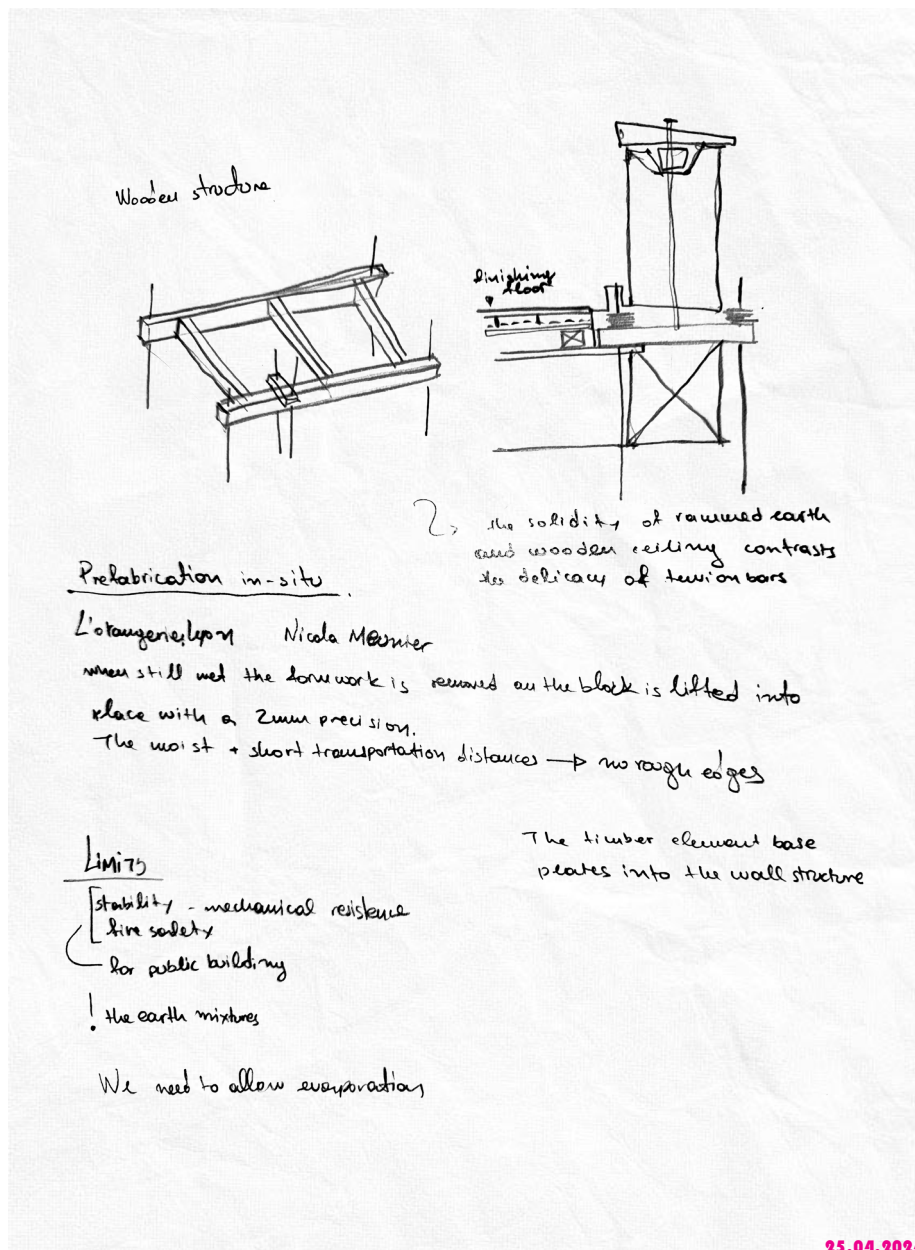 Wooden structure
finishing
floor
the solidity of rammed earth
and wooden ceiling contrasts
the delicacy of tension bars
Prefabrication in-situ
L'orangerie, Lyon Nicola Meunier
when still wet the formwork is removed an the block is lifted into
place with a 2mm precision.
The moist + short transportation distances → no rough edges
The timber element base
plates into the wall structure
LIMITS
stability - mechanical resistence
fire safety
for public building
! the earth mixtures
We need to allow evaporation
25.04.202